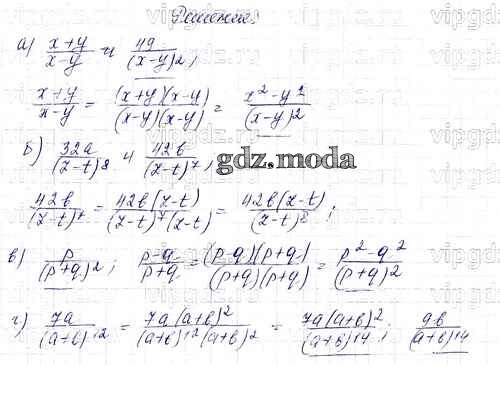 Решение:
а) x+y/x-y и 49/(x-y)2;
x+y/x-y = (x+y)(x-y)/(x-y)(x-y) = x²-y²/(x-y)2
б) 32a/(z-t)8 и 42b/(z-t)7;
gdz.moda
42b/(z-t)7 = 42b(z-t)/(z-t)7(z-t) = 42b(z-t)/(z-t)8;
в) p/(p+q)2; p-q/p+q = (p-q)(p+q)/(p+q)(p+q) = p²-q²/(p+q)2
г) 7a/(a+b)12 = 7a(a+b)²/(a+b)12(a+b)2 = 7a(a+b)²/(a+b)14; 9b/(a+b)14